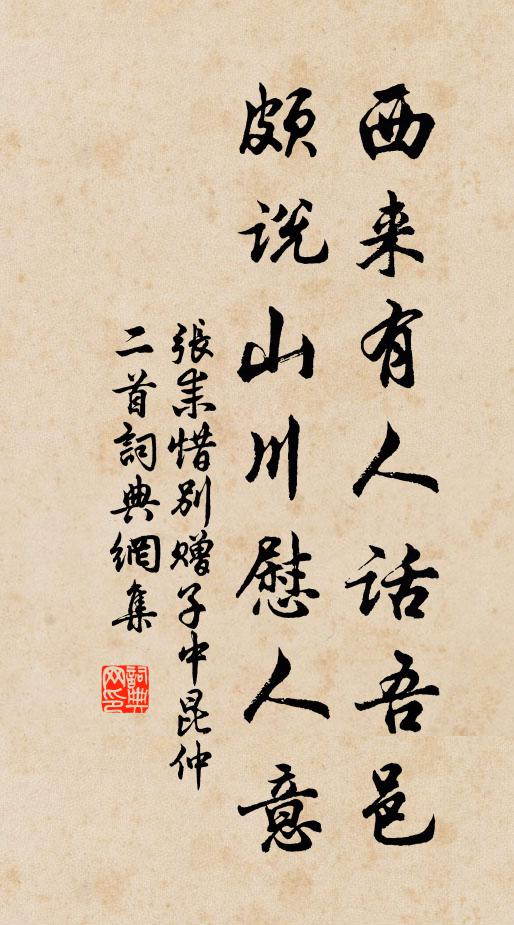 西来有人话吾邑
颇说山川慰人意
張耒惜别赠子中昆仲
二首詞典網集
詞典网印